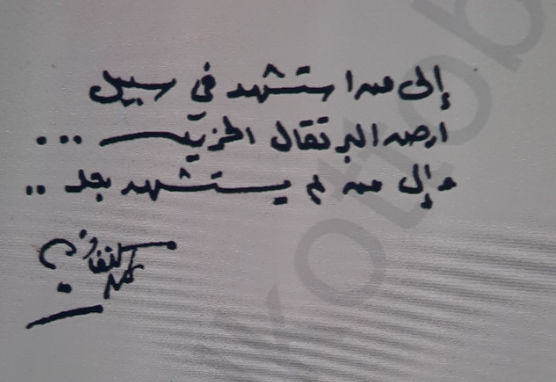 إلى من استشهد في سبيل
ارض البرتقال الحزين ...
وإلى من لم يستشهد بعد ..
kottob